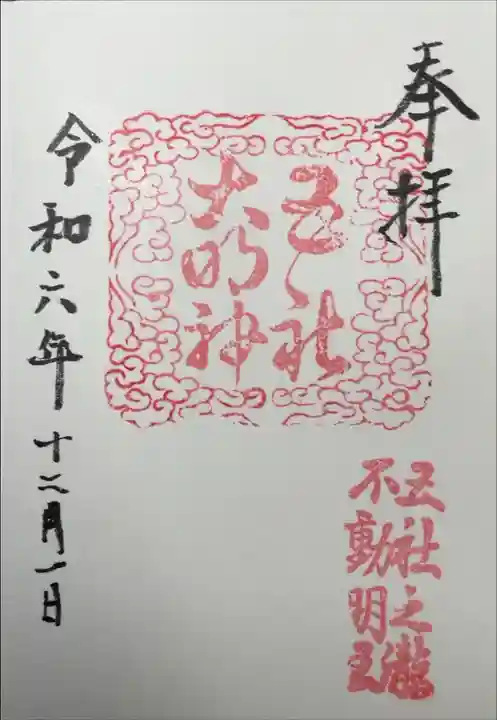 奉拝
五社
大明神
五社之瀧
不動明王
令和六年十二月一日